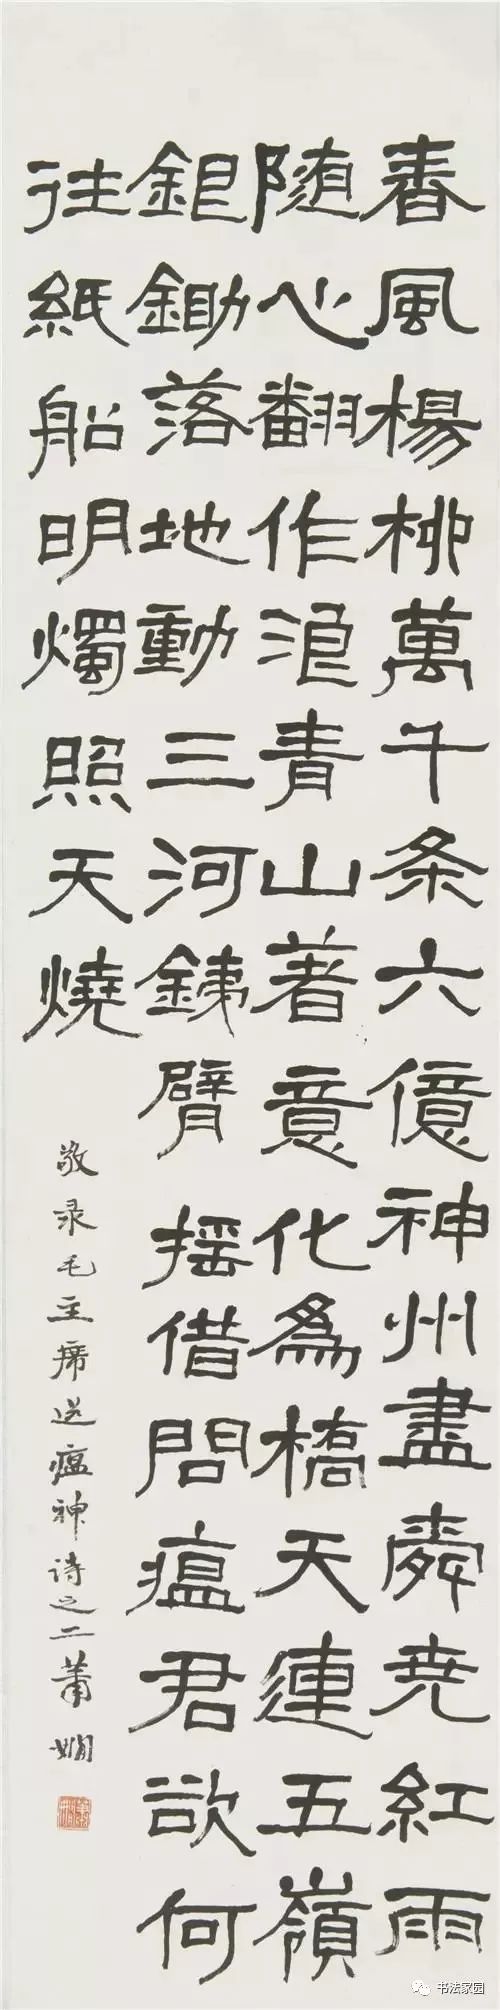 春風楊柳萬千条六億神州盡舜尭紅雨
随心翻作浪青山著意化為橋天連五嶺
銀鋤落地動三河銕臂摇借問瘟君欲何
往紙船明燭照天燒
敬录毛主席送瘟神诗之二萧娴
书法家园